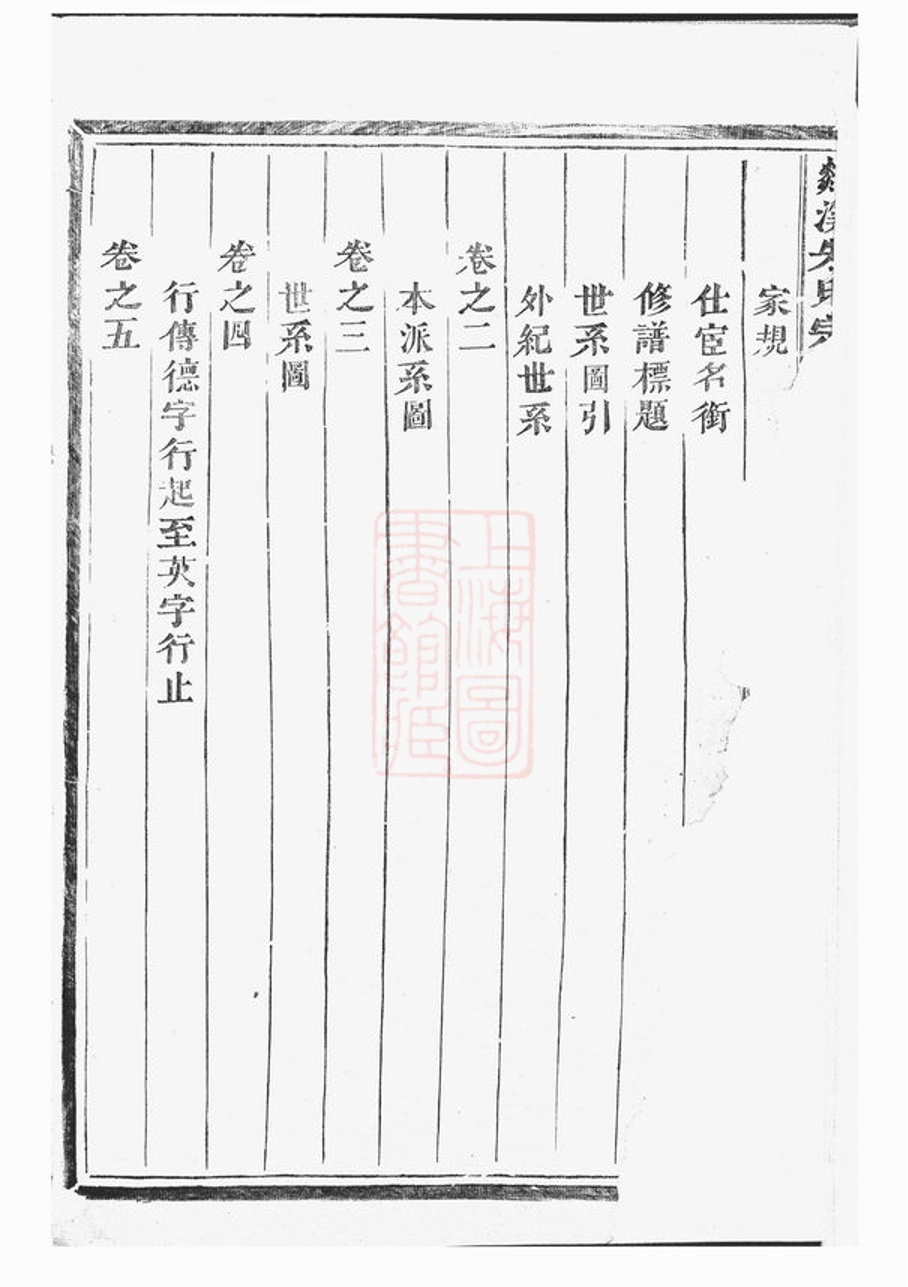 家規
仕宦名銜
修譜標題
世系圖引
外紀世系
卷之二
本派系圖
卷之三
世系圖
卷之四
行傳德字行起至英字行止
卷之五
上海圖
書館藏